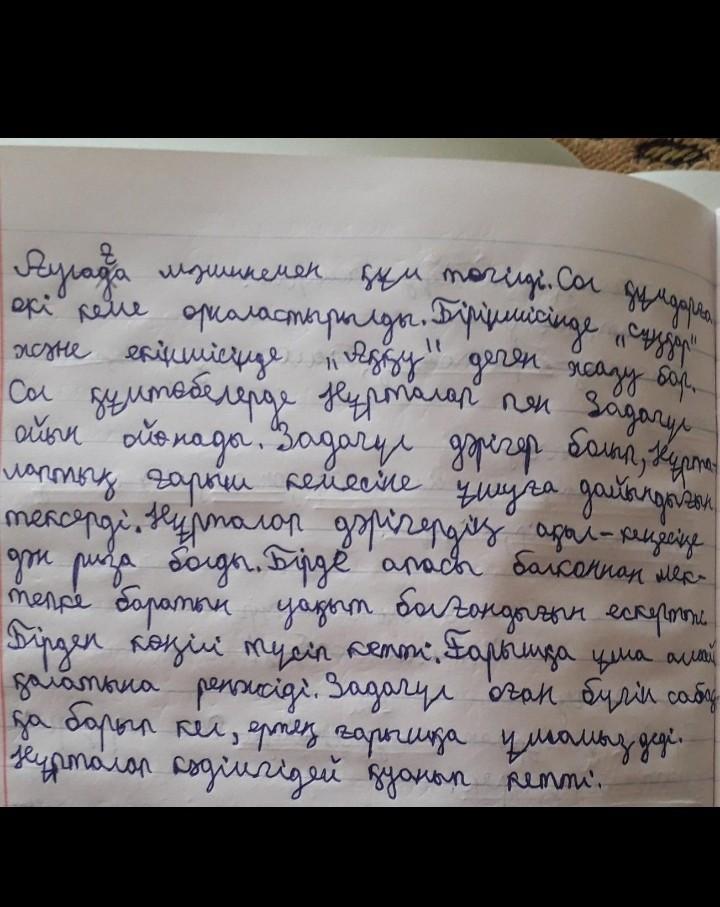 Аулаға мәшинемен құм төгілді. Сол құмдарға
екі кеме орналастырылды. Біріншісінде „Сұңқар"
және екіншісінде „Аққу" деген жазу бар.
Сол құмтөбелерде Нұрталап пен Задагүл
ойын ойонады. Задагүл дәрігер болып, Нұрта-
лаптың ғарыш кемесіне ұшуға дайындығын
тексерді. Нұрталап дәрігердің ақыл-кеңесіне
дән риза болды. Бірде апасы балконнан мек-
тепке баратын уақыт болғандығын ескертті.
Бірден көңілі түсіп кетті. Ғарышқа ұша алмай
қалатына ренжіді. Задагүл оған бүгін сабақ
қа барып кел, ертең ғарышқа ұшамыз деді.
Нұрталап кәдімгідей қуанып кетті.